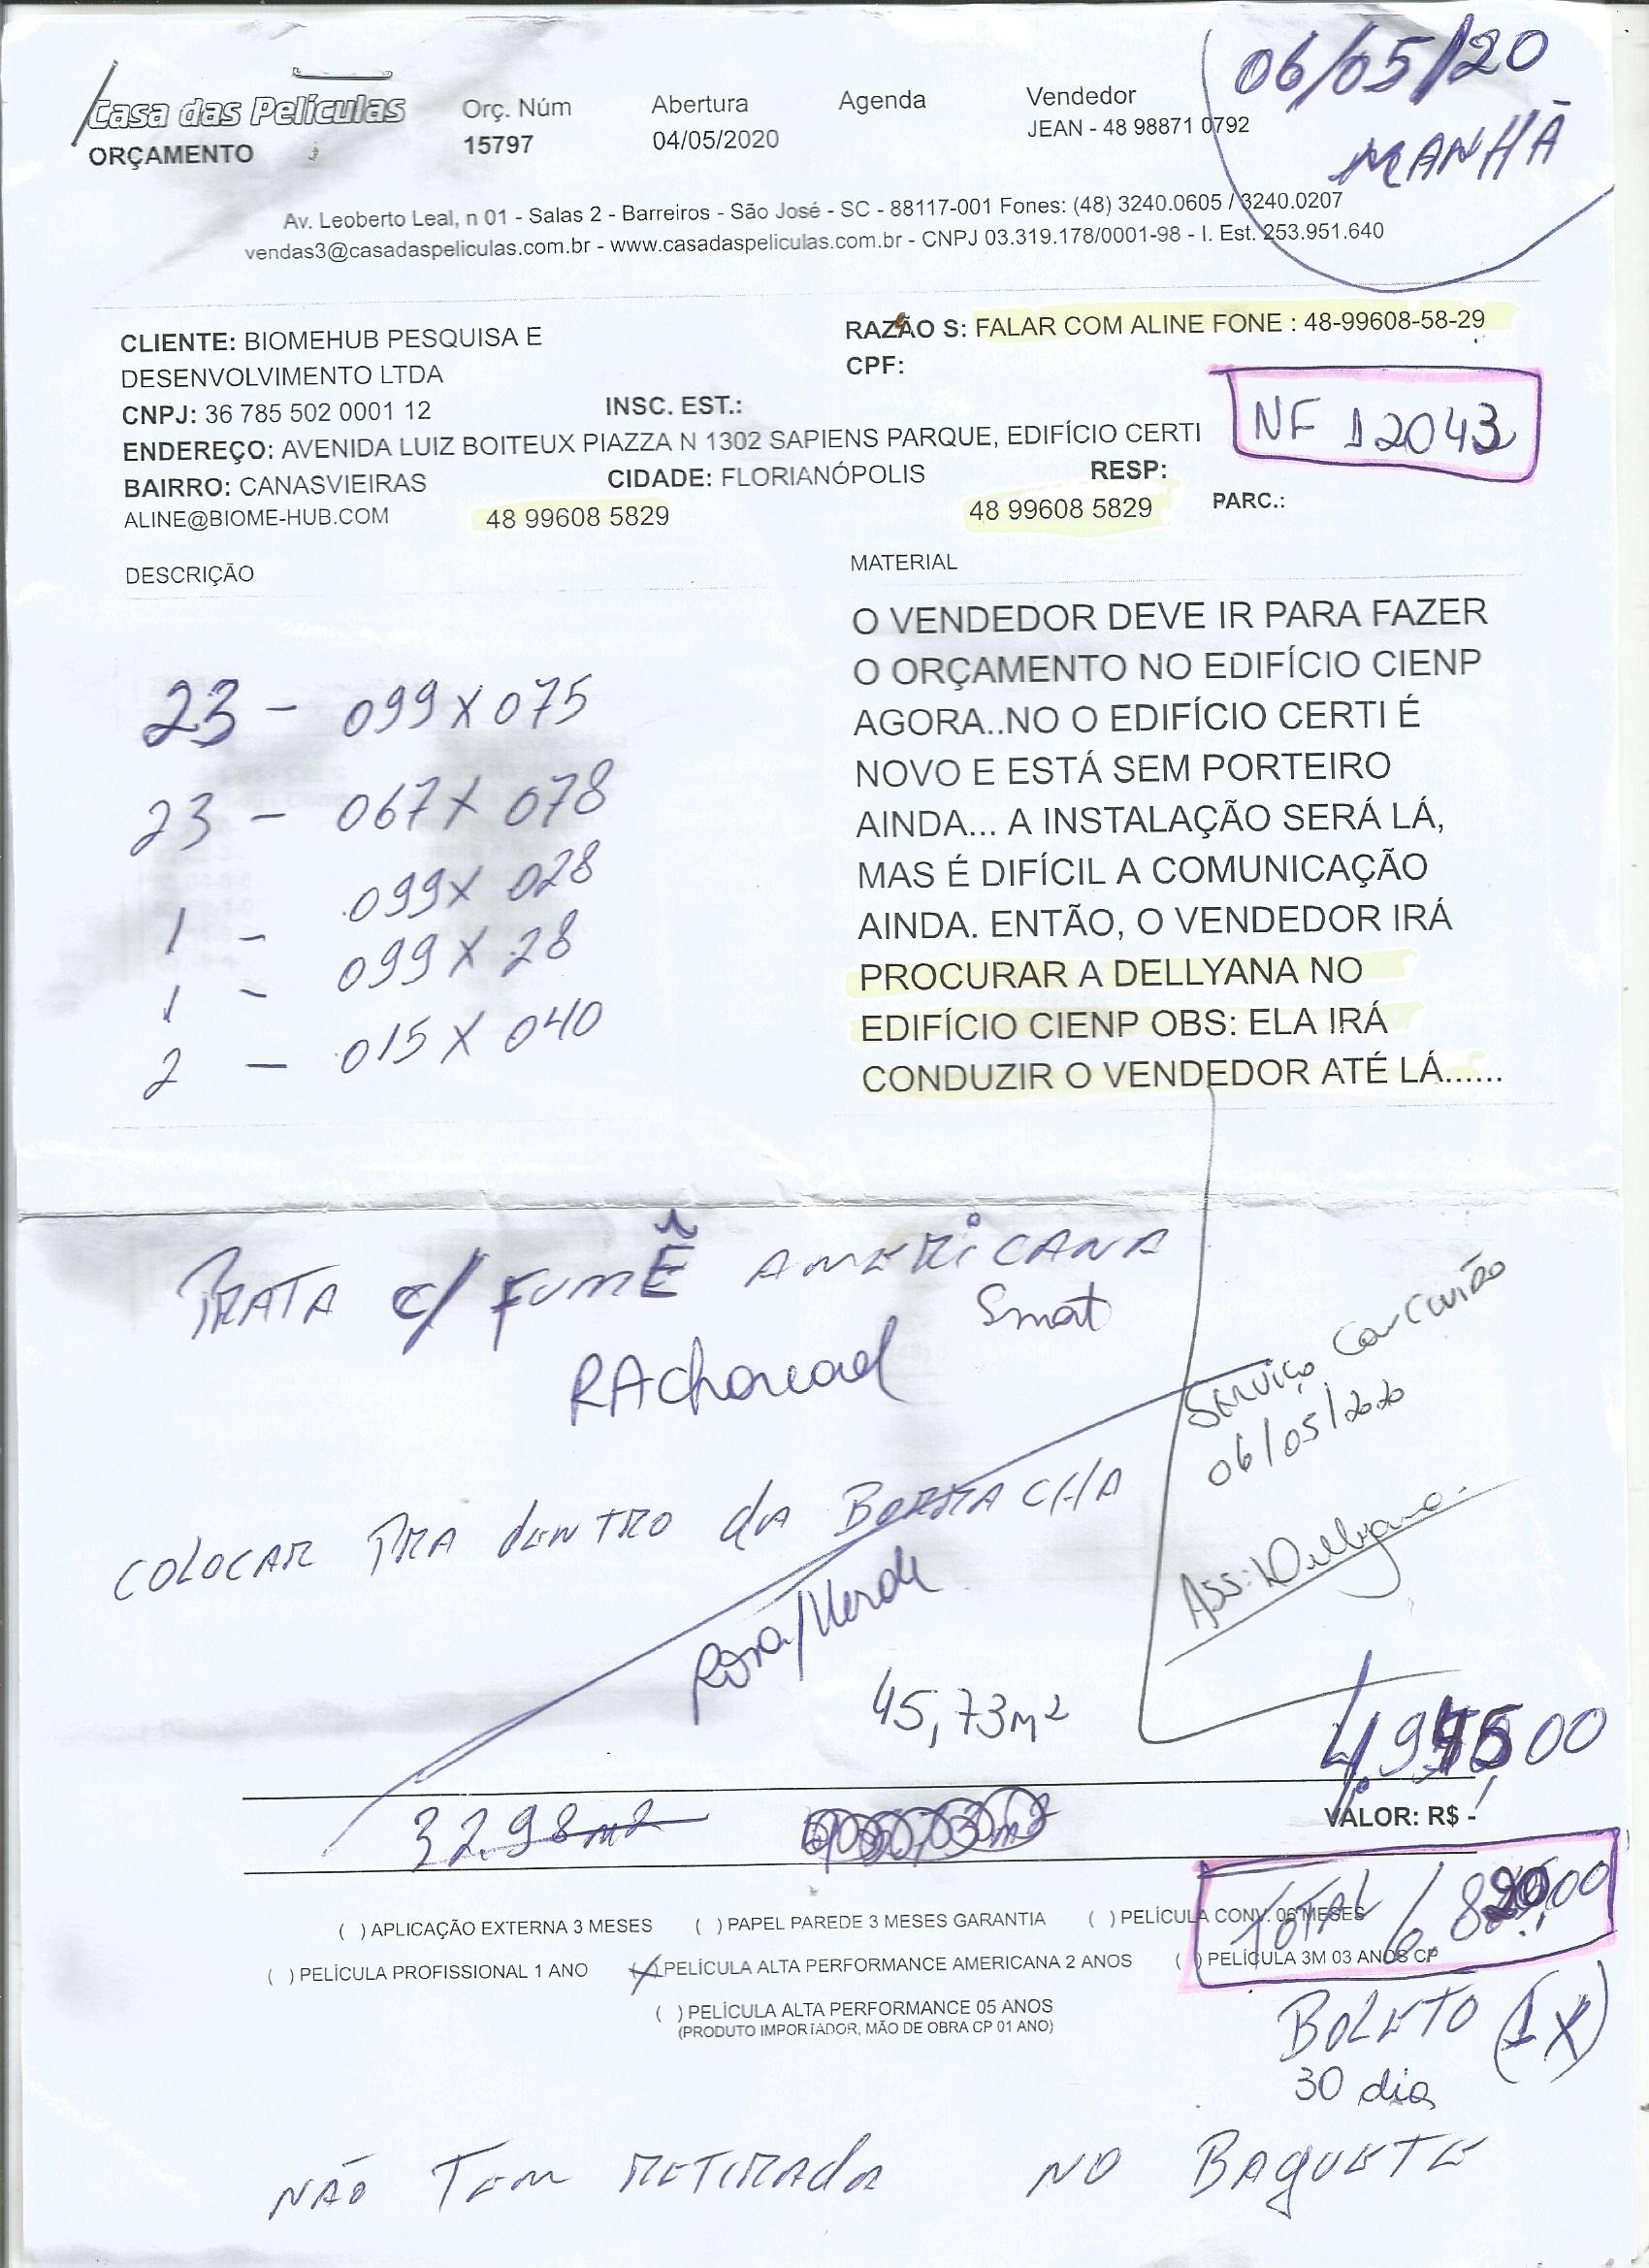 06/05/20
MANHÃ
Casa das Películas
ORÇAMENTO
Orç. Núm
15797
Abertura
04/05/2020
Agenda
Vendedor
JEAN - 48 98871 0792
Av. Leoberto Leal, n 01 - Salas 2 - Barreiros - São José - SC - 88117-001 Fones: (48) 3240.0605 / 3240.0207
vendas3@casadaspeliculas.com.br - www.casadaspeliculas.com.br - CNPJ 03.319.178/0001-98 - I. Est. 253.951.640
CLIENTE: BIOMEHUB PESQUISA E
DESENVOLVIMENTO LTDA
RAZÃO S: FALAR COM ALINE FONE : 48-99608-58-29
CPF:
CNPJ: 36 785 502 0001 12
INSC. EST.:
NF 12043
ENDEREÇO: AVENIDA LUIZ BOITEUX PIAZZA N 1302 SAPIENS PARQUE, EDIFÍCIO CERTI
BAIRRO: CANASVIEIRAS
CIDADE: FLORIANÓPOLIS
RESP:
ALINE@BIOME-HUB.COM
48 99608 5829
48 99608 5829
PARC.:
DESCRIÇÃO
23 - 099 X 075
23 - 067 X 078
1 - 099 X 028
1 - 099 X 28
2 - 015 X 040
MATERIAL
O VENDEDOR DEVE IR PARA FAZER
O ORÇAMENTO NO EDIFÍCIO CIENP
AGORA..NO O EDIFÍCIO CERTI É
NOVO E ESTÁ SEM PORTEIRO
AINDA... A INSTALAÇÃO SERÁ LÁ,
MAS É DIFÍCIL A COMUNICAÇÃO
AINDA. ENTÃO, O VENDEDOR IRÁ
PROCURAR A DELLYANA NO
EDIFÍCIO CIENP OBS: ELA IRÁ
CONDUZIR O VENDEDOR ATÉ LÁ......
PRATA c/ FUMÊ AMERICANA
Smat
SERVIÇO
06/05/2020
Ass: Dellyana.
COLOCAR PRA dENTRO dA BORRACHA
Rosa/Verde
45,73m2
32.98m2
VALOR: R$ -
TOTAL
( ) APLICAÇÃO EXTERNA 3 MESES ( ) PAPEL PAREDE 3 MESES GARANTIA ( ) PELÍCULA CONV. 06 MESES
( ) PELÍCULA PROFISSIONAL 1 ANO (X) PELÍCULA ALTA PERFORMANCE AMERICANA 2 ANOS ( ) PELÍCULA 3M 03 ANOS CP
( ) PELÍCULA ALTA PERFORMANCE 05 ANOS
(PRODUTO IMPORTADOR, MÃO DE OBRA CP 01 ANO)
BOLETO (1X)
30 dia
NÃO TEM RETIRADA NO BAGUETE